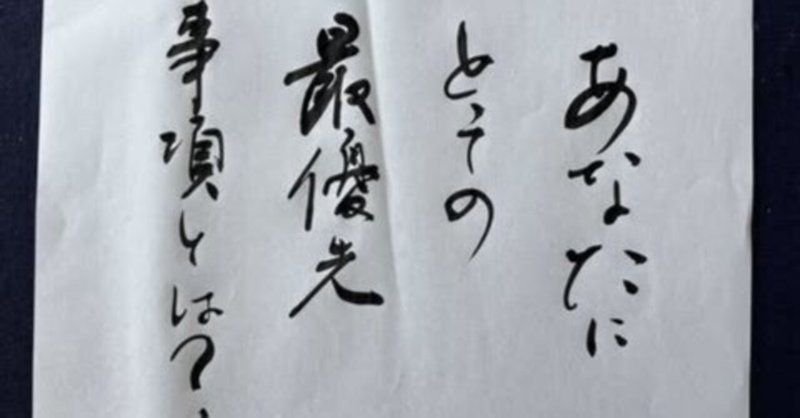 あなたに
とっての
最優先
事項とは？